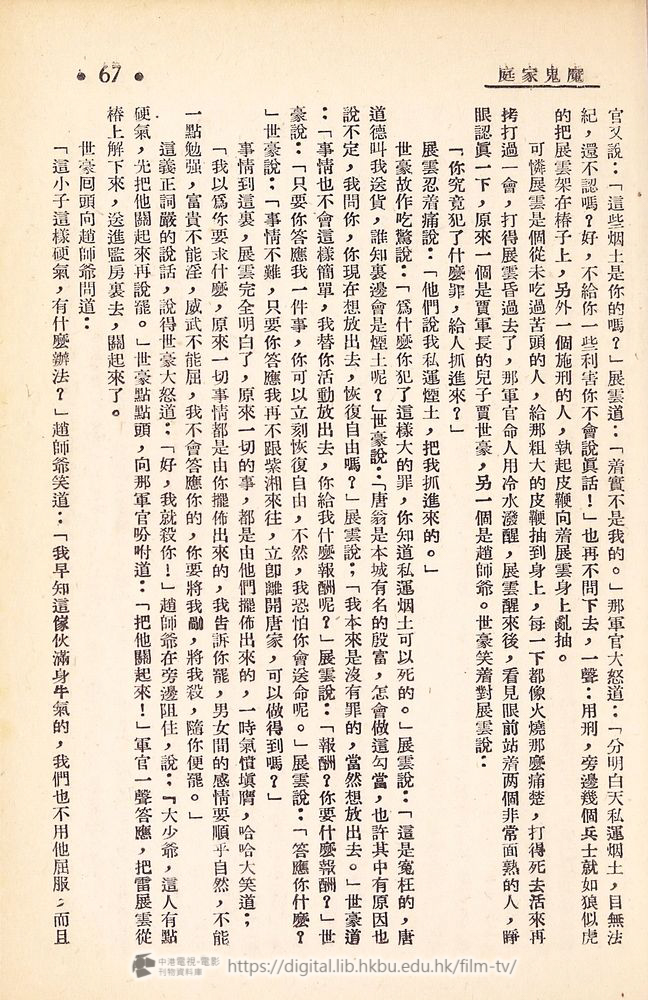 魔鬼家庭
• 67 •
官又說：「這些烟土是你的嗎？」展雲道：「着實不是我的。」那軍官大怒道：「分明白天私運烟土，目無法
紀，還不認嗎？好，不給你一些利害你不會說眞話！」也再不問下去，一聲：用刑，旁邊幾個兵士就如狼似虎
的把展雲架在樁子上，另外一個施刑的人，執起皮鞭向着展雲身上亂抽。
可憐展雲是個從未吃過苦頭的人，給那粗大的皮鞭抽到身上，每一下都像火燒那麼痛楚，打得死去活來再
拷打過一會，打得展雲昏過去了，那軍官命人用冷水潑醒，展雲醒來後，看見眼前站着兩個非常面熟的人，睜
眼認眞一下，原來一個是賈軍長的兒子賈世豪，另一個是趙師爺。世豪笑着對展雲說：
「你究竟犯了什麼罪，給人抓進來？」
展雲忍着痛說：「他們說我私運煙土，把我抓進來的。」
世豪故作吃驚說：「爲什麼你犯了這樣大的罪，你知道私運烟土可以死的。」展雲說：「這是寃枉的，唐
道德叫我送貨，誰知裏邊會是煙土呢？」世豪說：「唐翁是本城有名的殷富，怎會做這勾當，也許其中有原因也
說不定，我問你，你現在想放出去，恢復自由嗎？」展雲說：「我本來是沒有罪的，當然想放出去。」世豪道
：「事情也不會這樣簡單，我替你活動放出去，你給我什麼報酬呢？」展雲說：「報酬？你要什麼報酬？」世
豪說：「只要你答應我一件事，你可以立刻恢復自由，不然，我恐怕你會送命呢。」展雲說：「答應你什麼？
」世豪說：「事情不難，只要你答應我再不跟紫湘來往，立卽離開唐家，可以做得到嗎？」
事情到這裏，展雲完全明白了，原來一切的事，都是由他們擺佈出來的，一時氣憤塡膺，哈哈大笑道：
「我以爲你要求什麼，原來一切事情都是由你擺佈出來的，我告訴你罷，男女間的感情要順乎自然，不能
一點勉强，富貴不能淫，威武不能屈，我不會答應你的，你要將我剮，將我殺，隨你便罷。」
這義正詞嚴的說話，說得世豪大怒道：「好，我就殺你！」趙師爺在旁邊阻住，說：『大少爺，這人有點
硬氣，先把他關起來再說罷。」世豪點點頭，向那軍官吩咐道：「把他關起來！」軍官一聲答應，把雷展雲從
樁上解下來，送進監房裏去，關起來了。
世豪回頭向趙師爺問道：
「這小子這樣硬氣，有什麼辦法？」趙師爺笑道：「我早知這傢伙滿身牛氣的，我們也不用他屈服，而且
中港電視-電影
刊物資料庫
https://digital.lib.hkbu.edu.hk/film-tv/